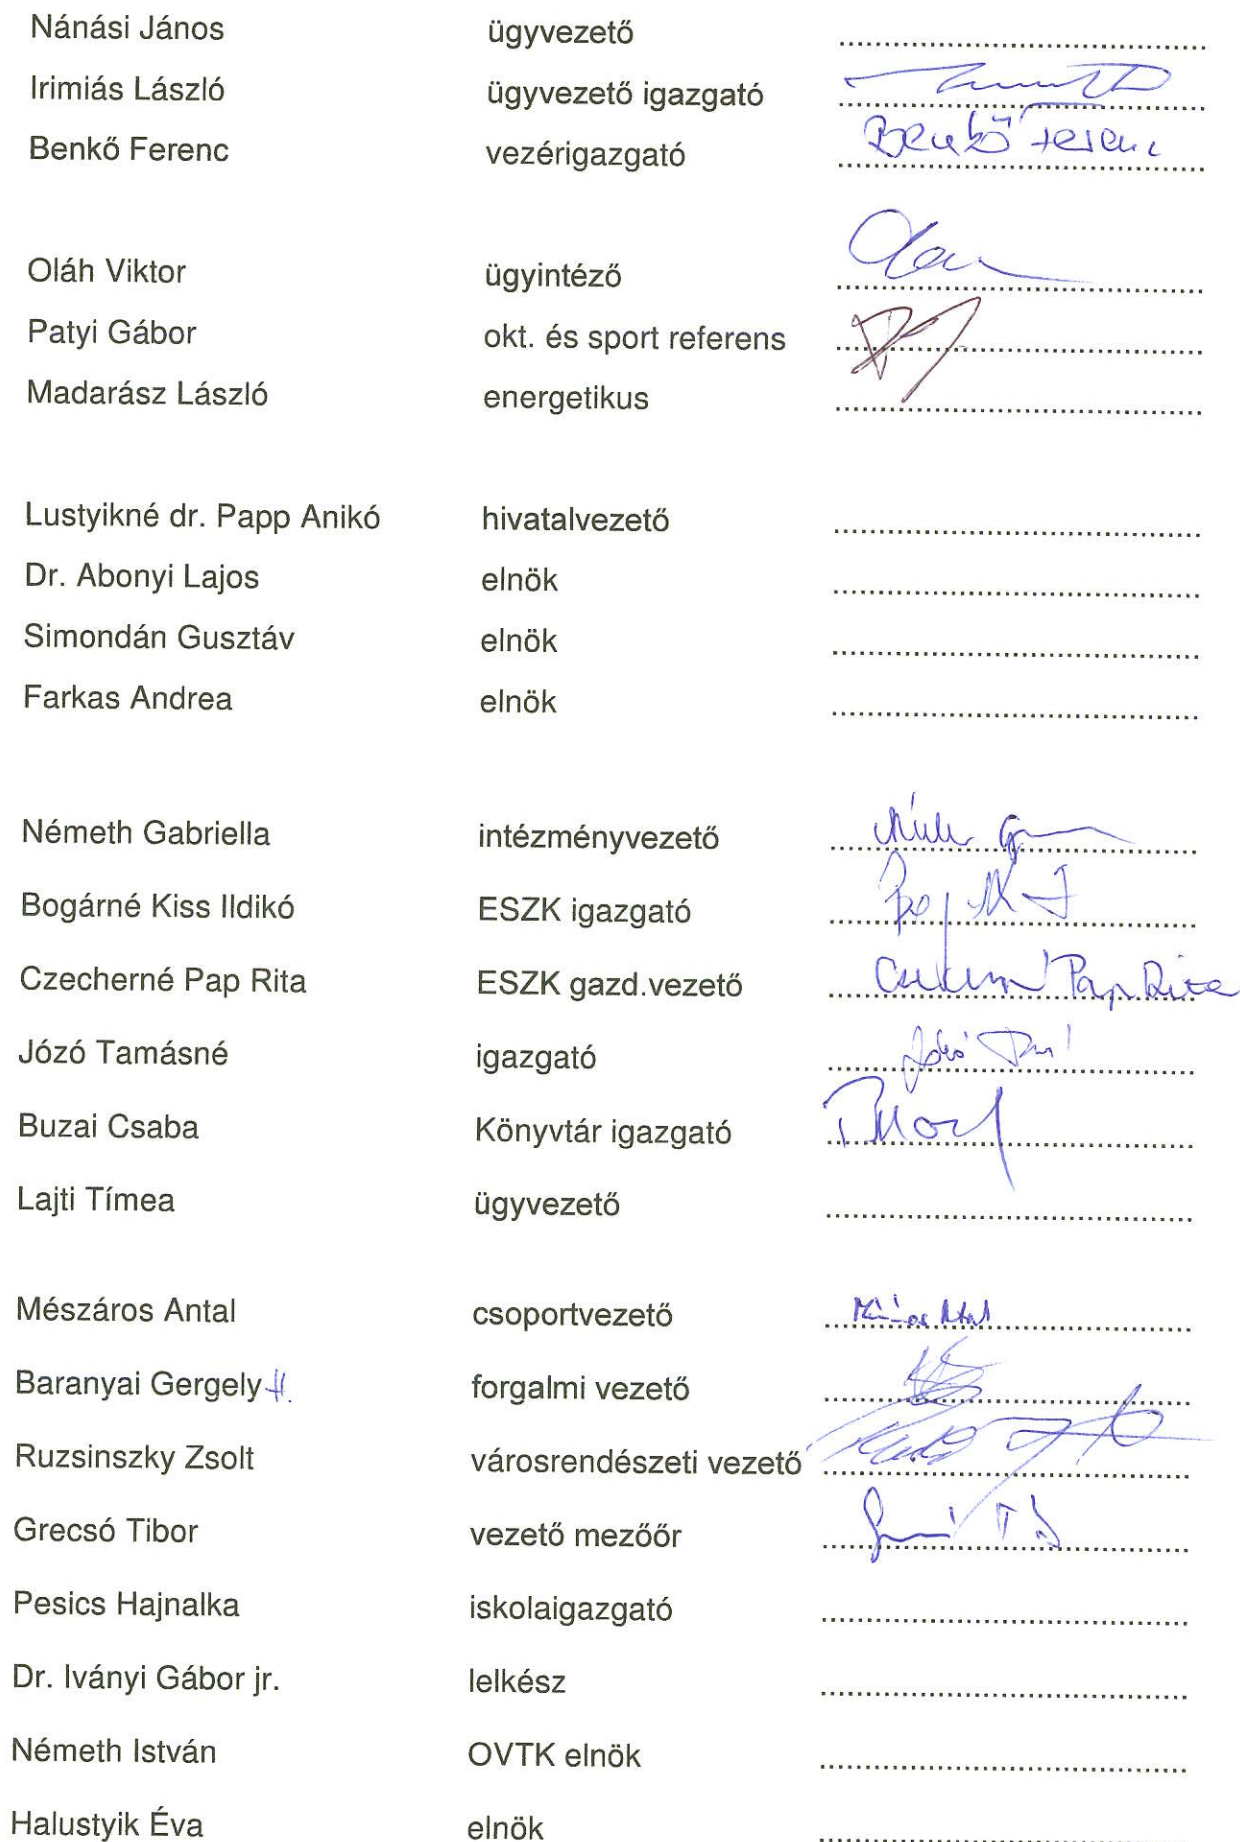 Nánási János ügyvezető
Irimiás László ügyvezető igazgató
Benkő Ferenc vezérigazgató Benkő Ferenc
Oláh Viktor ügyintéző
Patyi Gábor okt. és sport referens
Madarász László energetikus
Lustyikné dr. Papp Anikó hivatalvezető
Dr. Abonyi Lajos elnök
Simondán Gusztáv elnök
Farkas Andrea elnök
Németh Gabriella intézményvezető
Bogárné Kiss Ildikó ESZK igazgató
Czecherné Pap Rita ESZK gazd.vezető Czecherné Pap Rita
Józó Tamásné igazgató
Buzai Csaba Könyvtár igazgató
Lajti Tímea ügyvezető
Mészáros Antal csoportvezető
Baranyai Gergely H. forgalmi vezető
Ruzsinszky Zsolt városrendészeti vezető
Grecsó Tibor vezető mezőőr
Pesics Hajnalka iskolaigazgató
Dr. Iványi Gábor jr. lelkész
Németh István OVTK elnök
Halustyik Éva elnök